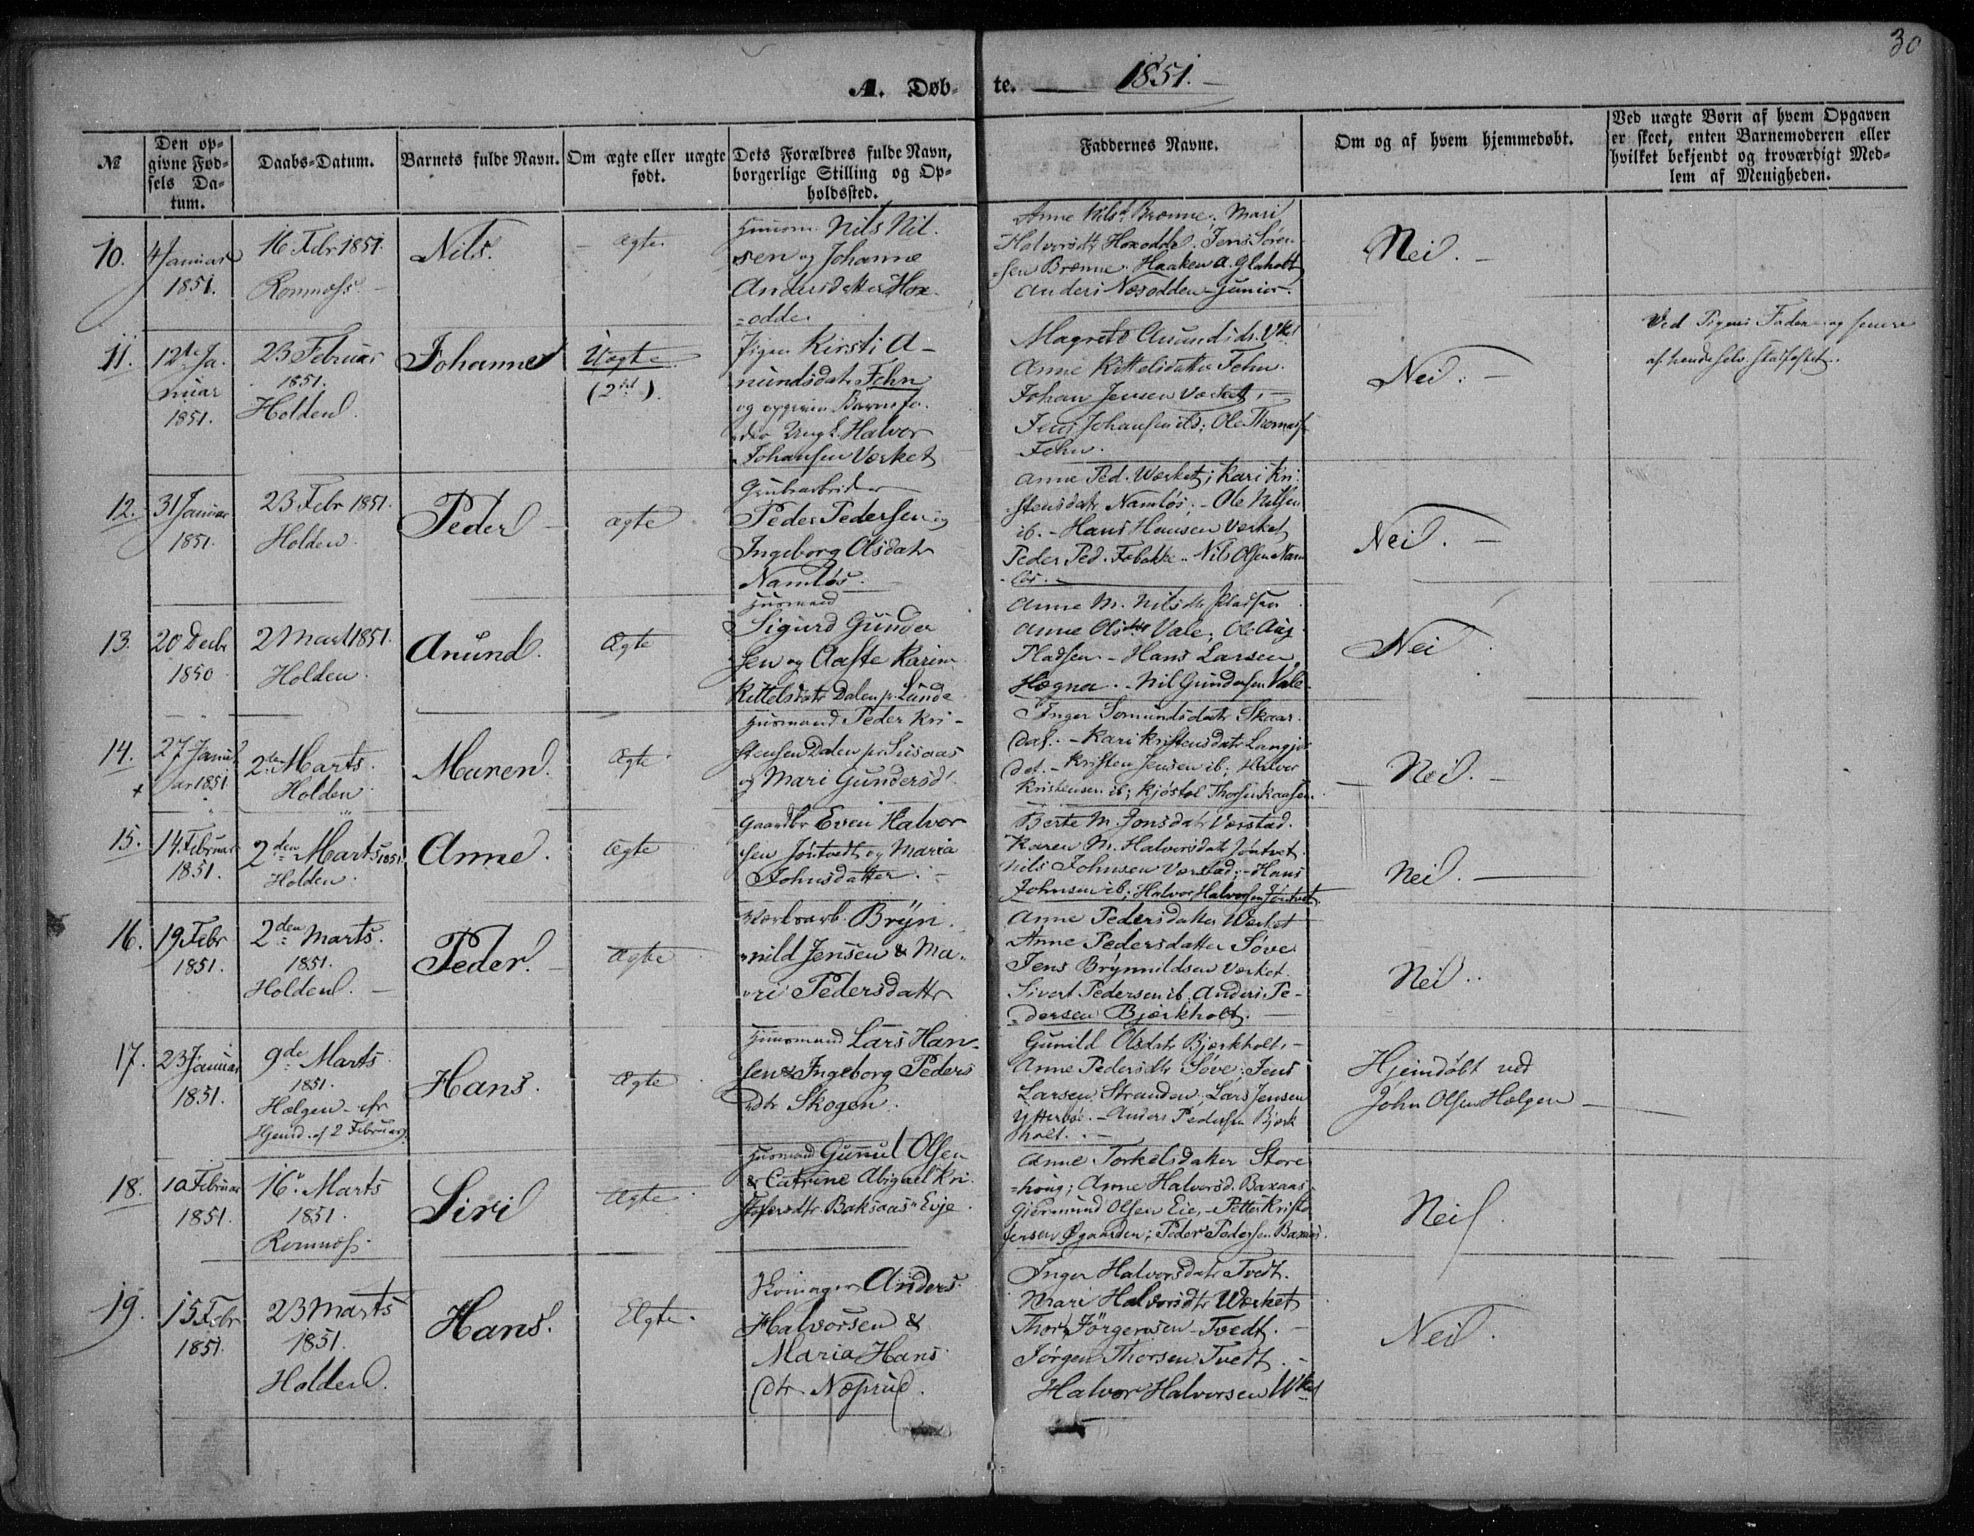 30
A. Døb-
te. 1851.
№
Den op-
givne Fød-
sels Da-
tum.
Daabs-Datum.
Barnets fulde Navn.
Om ægte eller uægte
født.
Dets Forældres fulde Navn,
borgerlige Stilling og Op-
holdssted.
Faddernes Navne.
Om og af hvem hjemmedøbt.
Ved uægte Børn af hvem Opgaven
er skeet, enten Barnemoderen eller
hvilket bekjendt og troværdigt Med-
lem af Menigheden.
10.
4 Januar
1851.
16 Febr 1851.
Romnæs.
Nils.
Ægte
Nils Nil-
sen og Johanne
Andersdatter Hox-
odde.
Anne Nilsd. Brenne. Mari
Halvorsdtr Hoxodde. Jens Søren-
sen Brenne. Haaken A. Glaholt
Anders Næsodden junior.
Nei.
11.
12te Ja-
nuar
1851.
23 Februar
1851.
Holden.
Johanne
Uægte
(2det).
Pigen Kirsti A-
nundsdatr Fehn
og opgiven Barnefa-
der Ungk. Halvor
Johansen Værket
Magrete Anundsdr. Vket
Anne Kittelsdatter Fehn.
Johan Jensen Værket,
Jens Johansen ib; Ole Thomass
Fehn.
Nei.
Ved Pigens Fader og senere
af hende selv stadfæstet.
12.
31 Januar
1851.
23 Febr 1851.
Holden.
Peder
Ægte
Grubearbeider
Peder Pedersen og
Ingeborg Olsdatr
Namløs.
Anne Ped. Værket; Kari Kri-
stensdatr Namløs; Ole Nilsen
ib. - Hans Hansen Værket
Peder Ped. - Nils Olsen Nam-
løs.
Nei.
13.
20 Decbr
1850
2 Mart 1851.
Holden.
Anund.
Ægte
Husmand
Sigurd Gunder
sen og Aaste Karine
Kittelsdatr Dalen p. Lunde
Anne M. Nilsdtr Pladsen
Anne Olsdtr Vale; Ole Aug.
Pladsen. - Hans Larsen
Hægna. - Nil Gundersen Vale
Nei.
14.
27 Janu-
ar 1851
2den Marts.
Holden.
Maren.
Ægte
Husmand Peder Kri-
stensen Dalen pr
og Mari Gundersd.
Inger Somundsdatr Skaar-
dal. - Kari Kristensdatr Langjor
det. - Kristen Jensen ib; Halvor
Kristensen ib; Kjøstol Thorsen Kaasen.
Nei.
15.
14 Februar
1851.
2den Marts 1851
Holden.
Anne.
Ægte
Gaardbr Even Halvor
sen Jøntvedt og Maria
Johnsdatter.
Berte M. Jonsdatr Værstad.
Karen M. Halvorsdatr Jøntvet.
Nils Johnsen Værstad; - Hans
Johnsen ib; Halvor Halvorsen Jøntvet
Nei.
16.
19 Febr
1851.
2den Marts.
1851.
Holden.
Peder.
Ægte
Værksarb. Bryn-
nild Jensen & Ma-
ri Pedersdattr
Anne Pedersdatter Værket
Anne Pedersdatter Søve
Jens Brynnildsen Værket.
Sivert Pedersen ib. Anders Pe-
dersen Bjerkholt.
Nei.
17.
23 Januar
1851.
9de Marts
1851.
Helgen - efr
Hjemd. af 2 Februar.
Hans.
Ægte
Husmand Lars Han-
sen & Ingeborg Peders
dtr Skogen.
Gunild Olsdatr Bjerkholt,
Anne Pedersdtr Søve; Jens
Larsen Stranden; Lars Jensen
Ytterbøe. - Anders Pedersen Bjerk
holt.
Hjemdøbt ved
John Olsen Helgen
18.
10 Februar
1851.
16. Marts
1851.
Romnæs.
Siri
Ægte
Husmand Gunnul Olsen
& Catrine Abigael Kri-
stofersdtr Baksaas Eije
Anne Torkelsdatter Store-
houg; Anne Halvorsd. Baxaas
Gjermund Olsen Eie, - Petter Kristo
fersen Øgaarden; Peder Pedersen Baxaas.
Nei
19.
15 Febr
1851.
23 Marts
1851.
Holden.
Hans.
Ægte
Anders
Halvorsen &
Maria Hans
dtr Næsrud.
Inger Halvorsdatr Tvedt.
Mari Halvorsdtr Værket
Thor Jörgensen Tvedt.
Jørgen Thorsen Tvedt.
Halvor Halvorsen Wket
Nei.